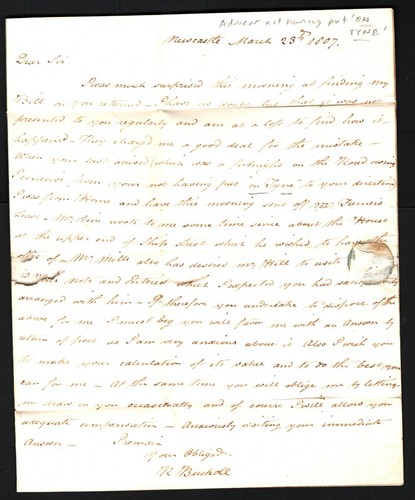 Advent not having put 'ON
TYNE'
Newcastle March 23rd 1807.
Dear Sir
I was much surprised this morning at finding my
Bill on you returned – I have no doubt but that it was not
presented to you regularly and am at a loss to find how it
happened – They charged me a good deal for the mistake –
When your last arrived (which was a fortnight on the Road owing
from your not having put "on Tyne" to your direction
I was from Home and have this morning sent off Mr Turners
Lease – Mr wrote me some time since about the House
at the upper end of Ship Street which he wished to have the
offer of – Mr Mills also has desired Mr Hill to
is note and Interest which I expected you had
arranged with him – If therefore you undertake to dispose of the
above for me I must beg you will favor me with an Answer by
return of post as I am very anxious about it Also I wish you
to make your calculation of its value and to do the best you
can for me – At the same time you will oblige me by letting
me draw on you occasionally and of course I will allow you
adequate compensation – Anxiously waiting your immediate
Answer – I remain
Your Obliged